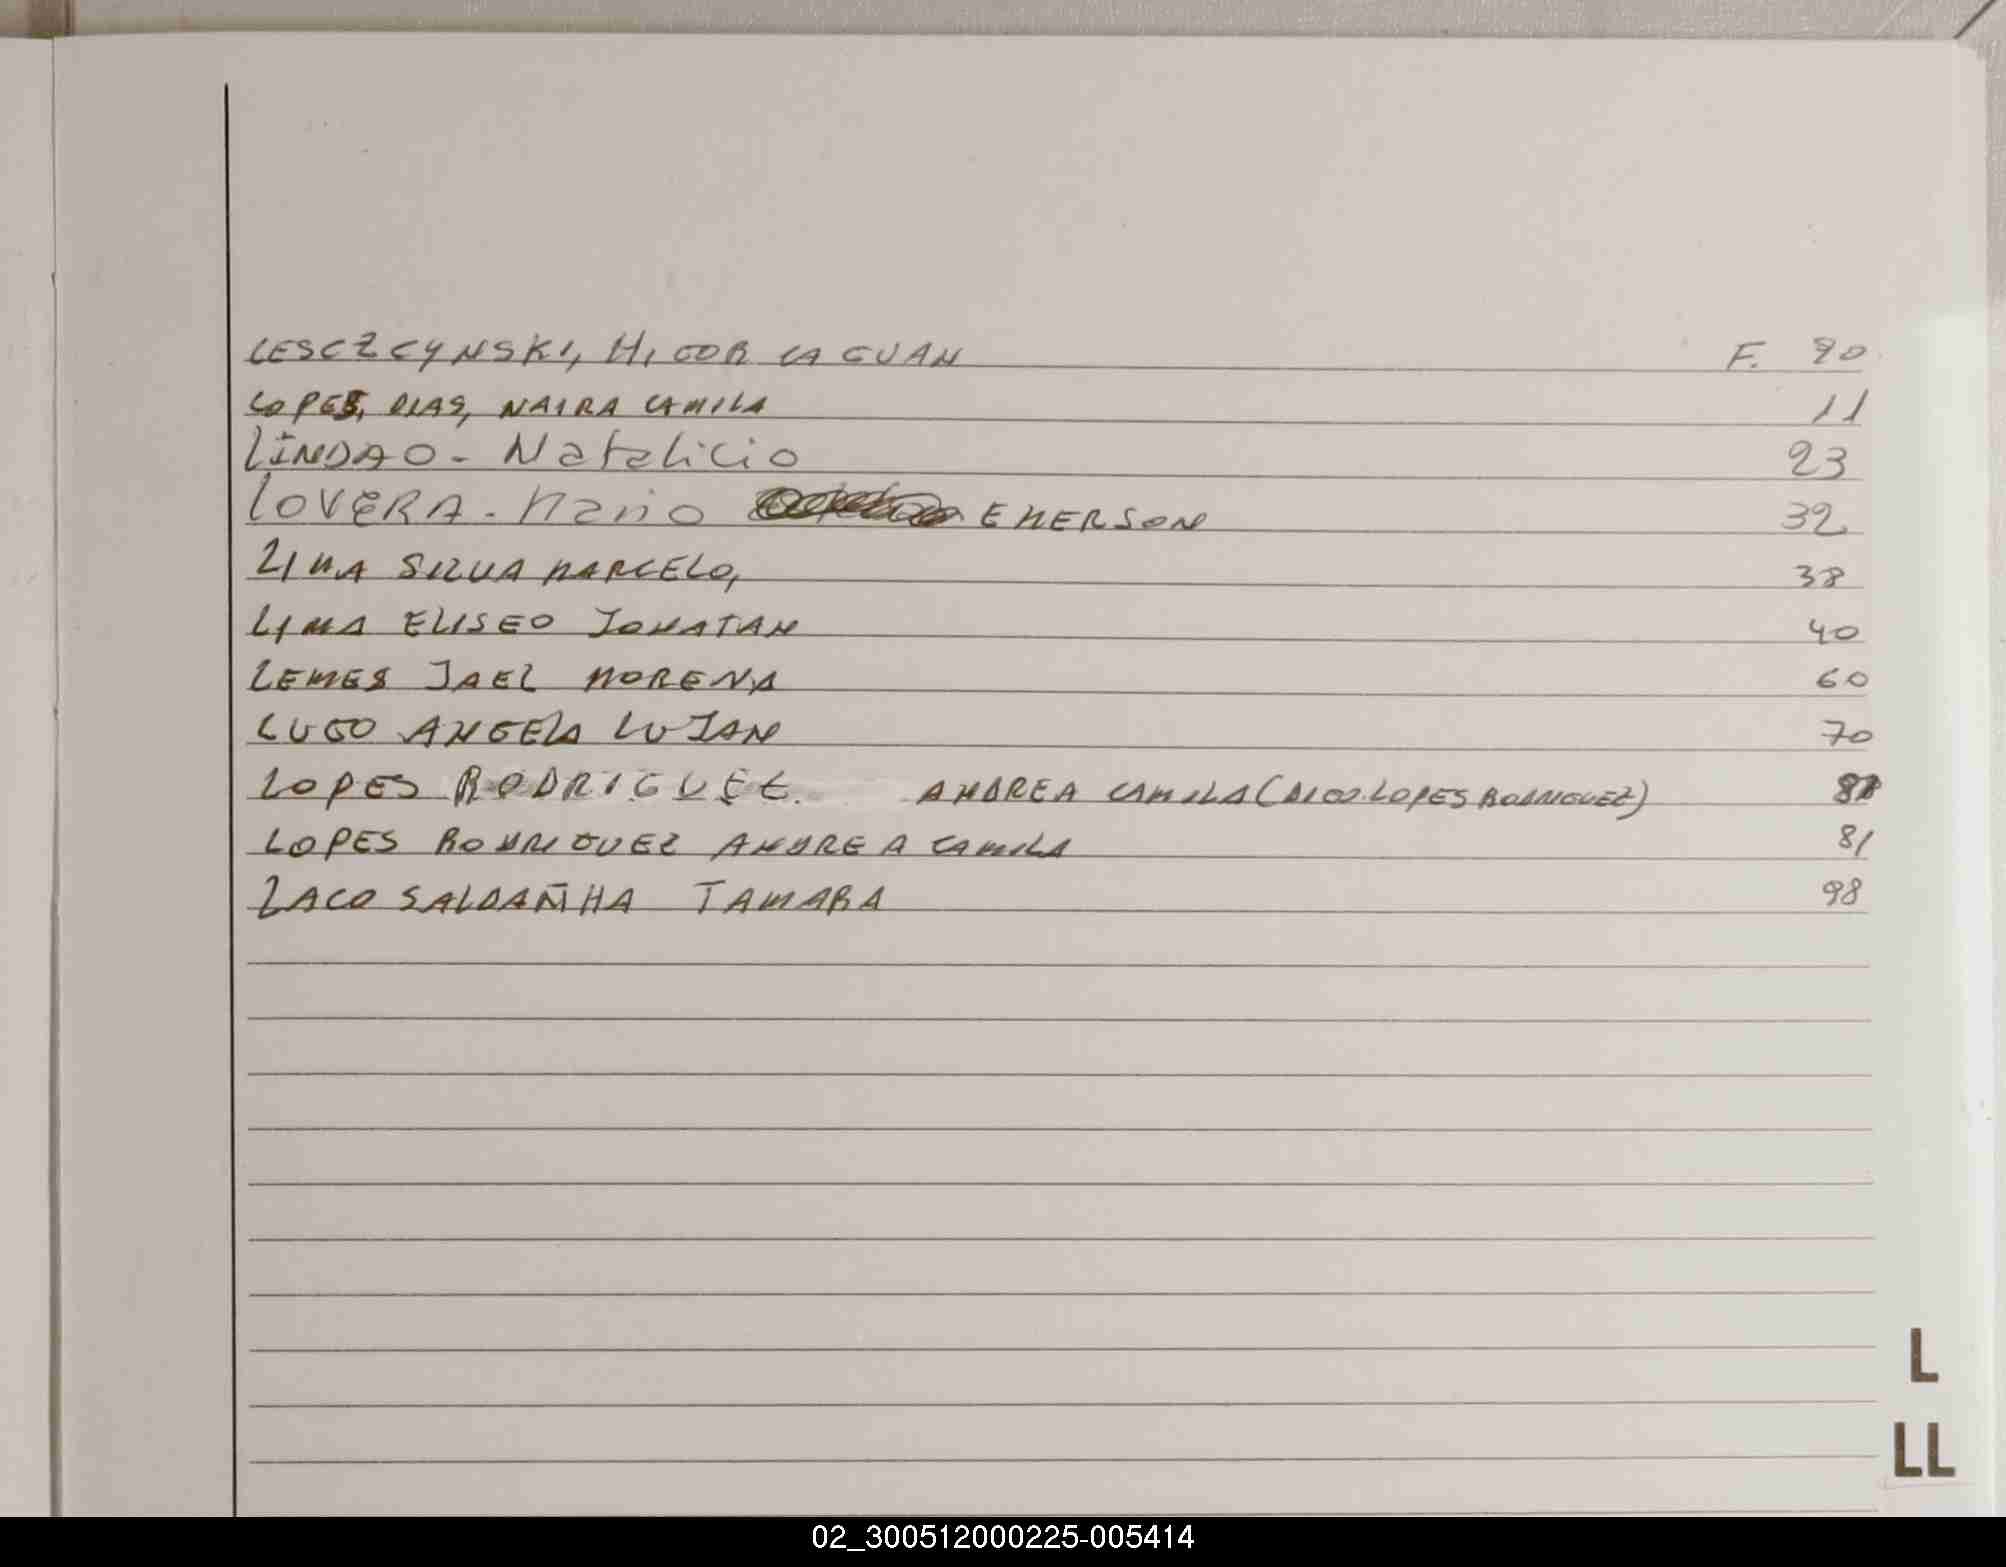 LESCZCYNSKI, HIGOR LAGUAN F. 90
LOPES, DIAS, NAIRA CAMILA 11
LINDAO - Natalicio 23
LOVERA - Mario EMERSON 32
LIMA SILVA MARCELO, 38
LIMA ELISEO JONATAN 40
LEMES JAEL MORENA 60
LUGO ANGELA LUJAN 70
LOPES RODRIGUEZ. ANDREA CAMILA (DIGO. LOPES RODRIGUEZ)
LOPES RODRIGUEZ ANDREA CAMILA 81
LACO SALDAÑHA TAMARA 98
L
LL
02_300512000225-005414